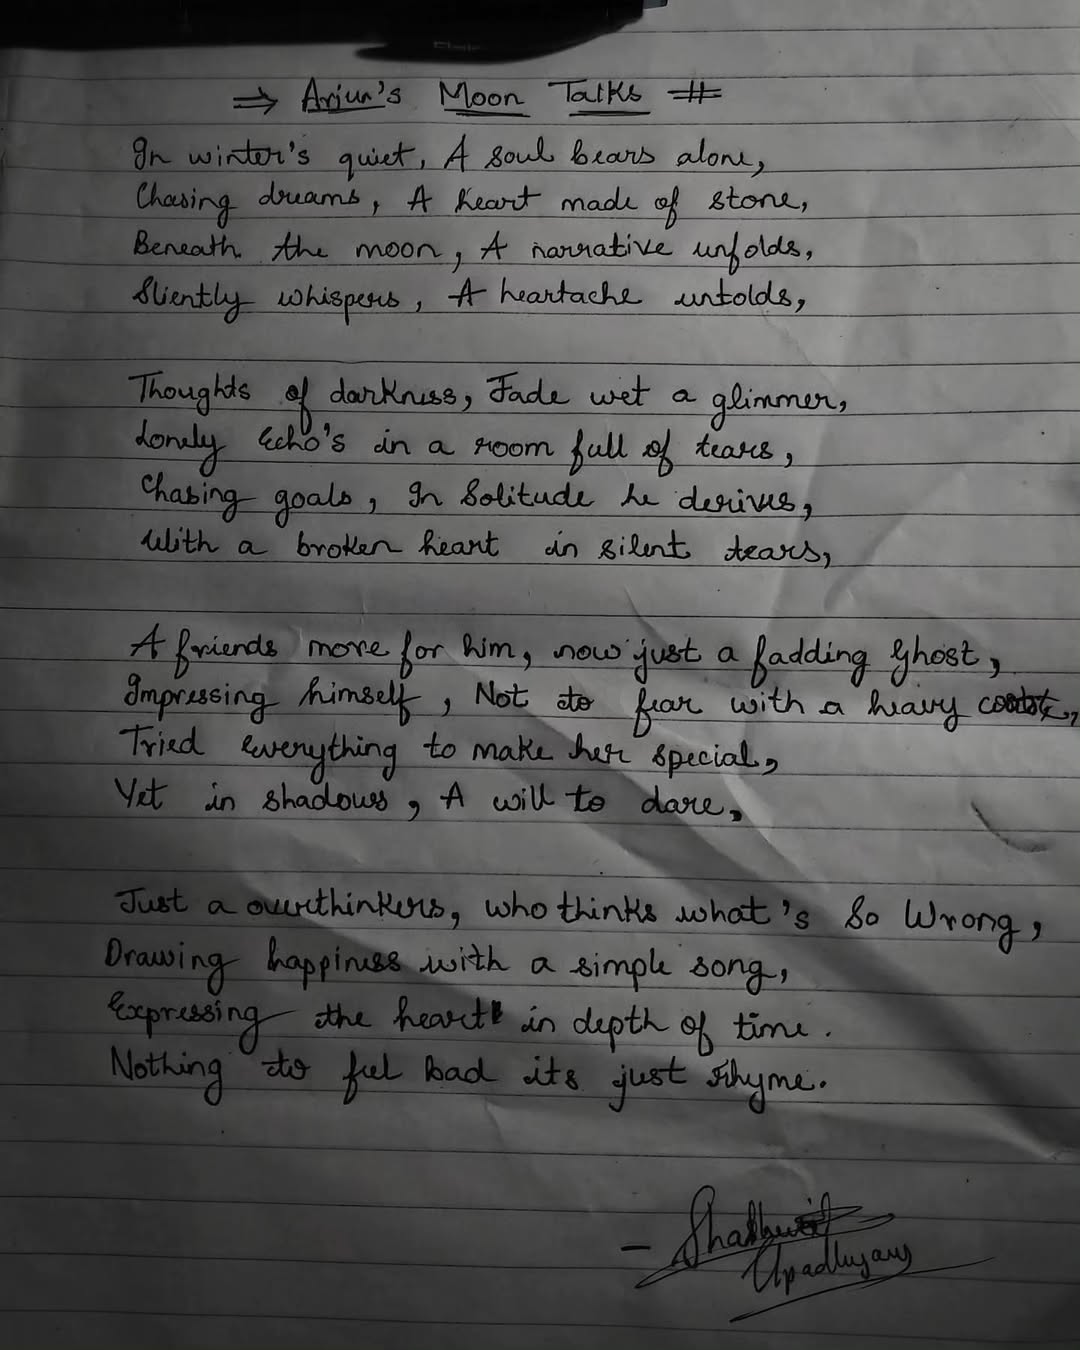 ⇒ Arjun's Moon Talks #
In winter's quiet, A soul bears alone,
Chasing dreams, A heart made of stone,
Beneath the moon, A narrative unfolds,
Sliently whispers, A heartache untolds,
Thoughts of darkness, Fade wet a glimmer,
Lonely Echo's in a room full of tears,
Chasing goals, In Solitude he derives,
With a broken heart in silent tears,
A friends move for him, now just a fadding Ghost,
Impressing himself, Not to fear with a heavy
Tried Everything to make her special,
Yet in shadows, A will to dare,
Just a overthinkers, who thinks what's So Wrong,
Drawing happiness with a simple song,
Expressing the heart in depth of time.
Nothing to feel bad its just rhyme.
- Upadhyay